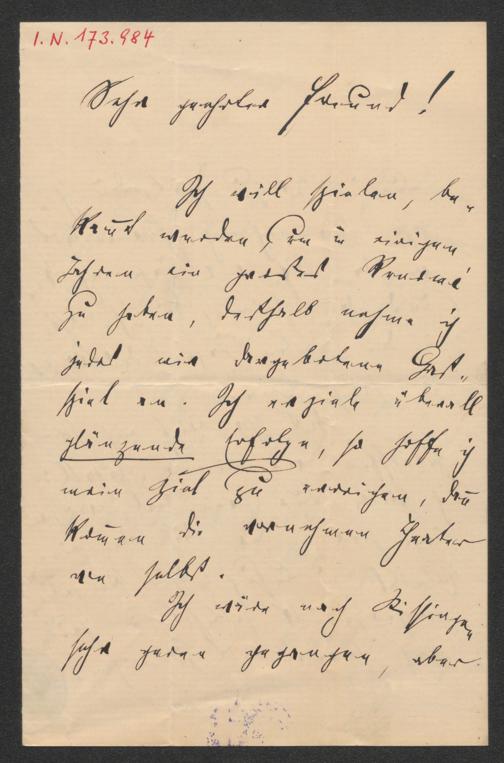 I. N. 173.984
Sehr geehrter Freund!
Ich will spielen, be-
kannt werden, um in einigen
Jahren ein großes Renomé
zu haben, deshalb nehme ich
jedes mir dargebotene Gast-
spiel an. Ich erziele überall
glänzende Erfolge, so hoffe ich
mein Ziel zu erreichen, dann
kommen die vornehmen Theater
von selbst.
Ich wäre nach Kissingen
sehr gerne gegangen, aber